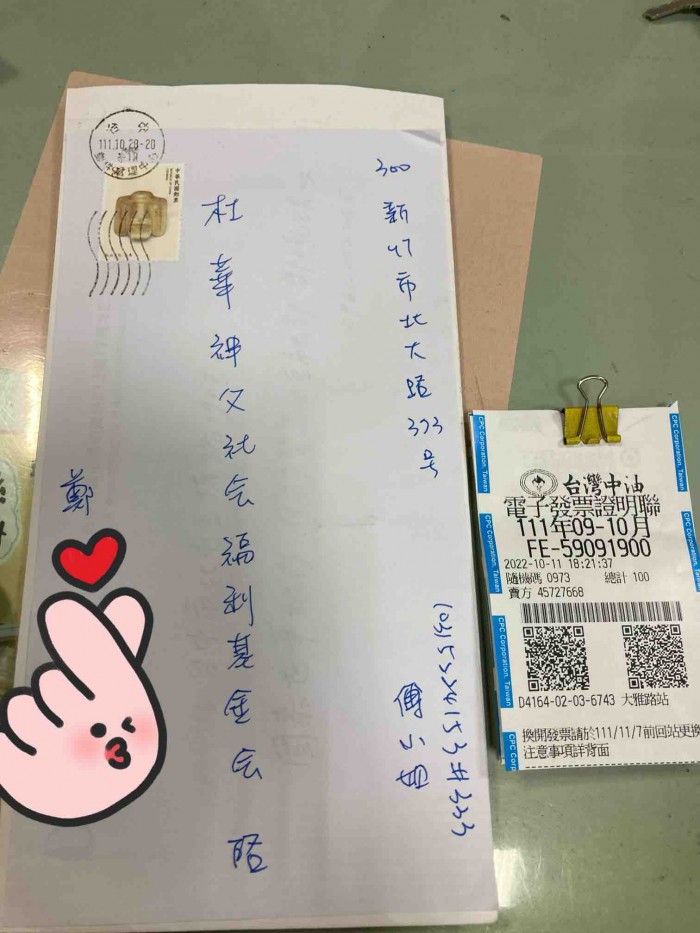 300 新竹市北大路373号
傅小姐
杜華神父社会福利基金会
鄭
111.10.28-20
中華民國郵票
台灣中油
電子發票證明聯
111年09-10月
FE-59091900
2022-10-11 18:21:37
隨機碼 0973 總計 100
賣方 45727668
D4164-02-03-6743 大雅路站
換開發票請於111/11/7前回站更換
注意事項詳背面
CPC Corporation, Taiwan
CPC Corporation, Taiwan
CPC Corporation, Taiwan
CPC Corporation, Taiwan